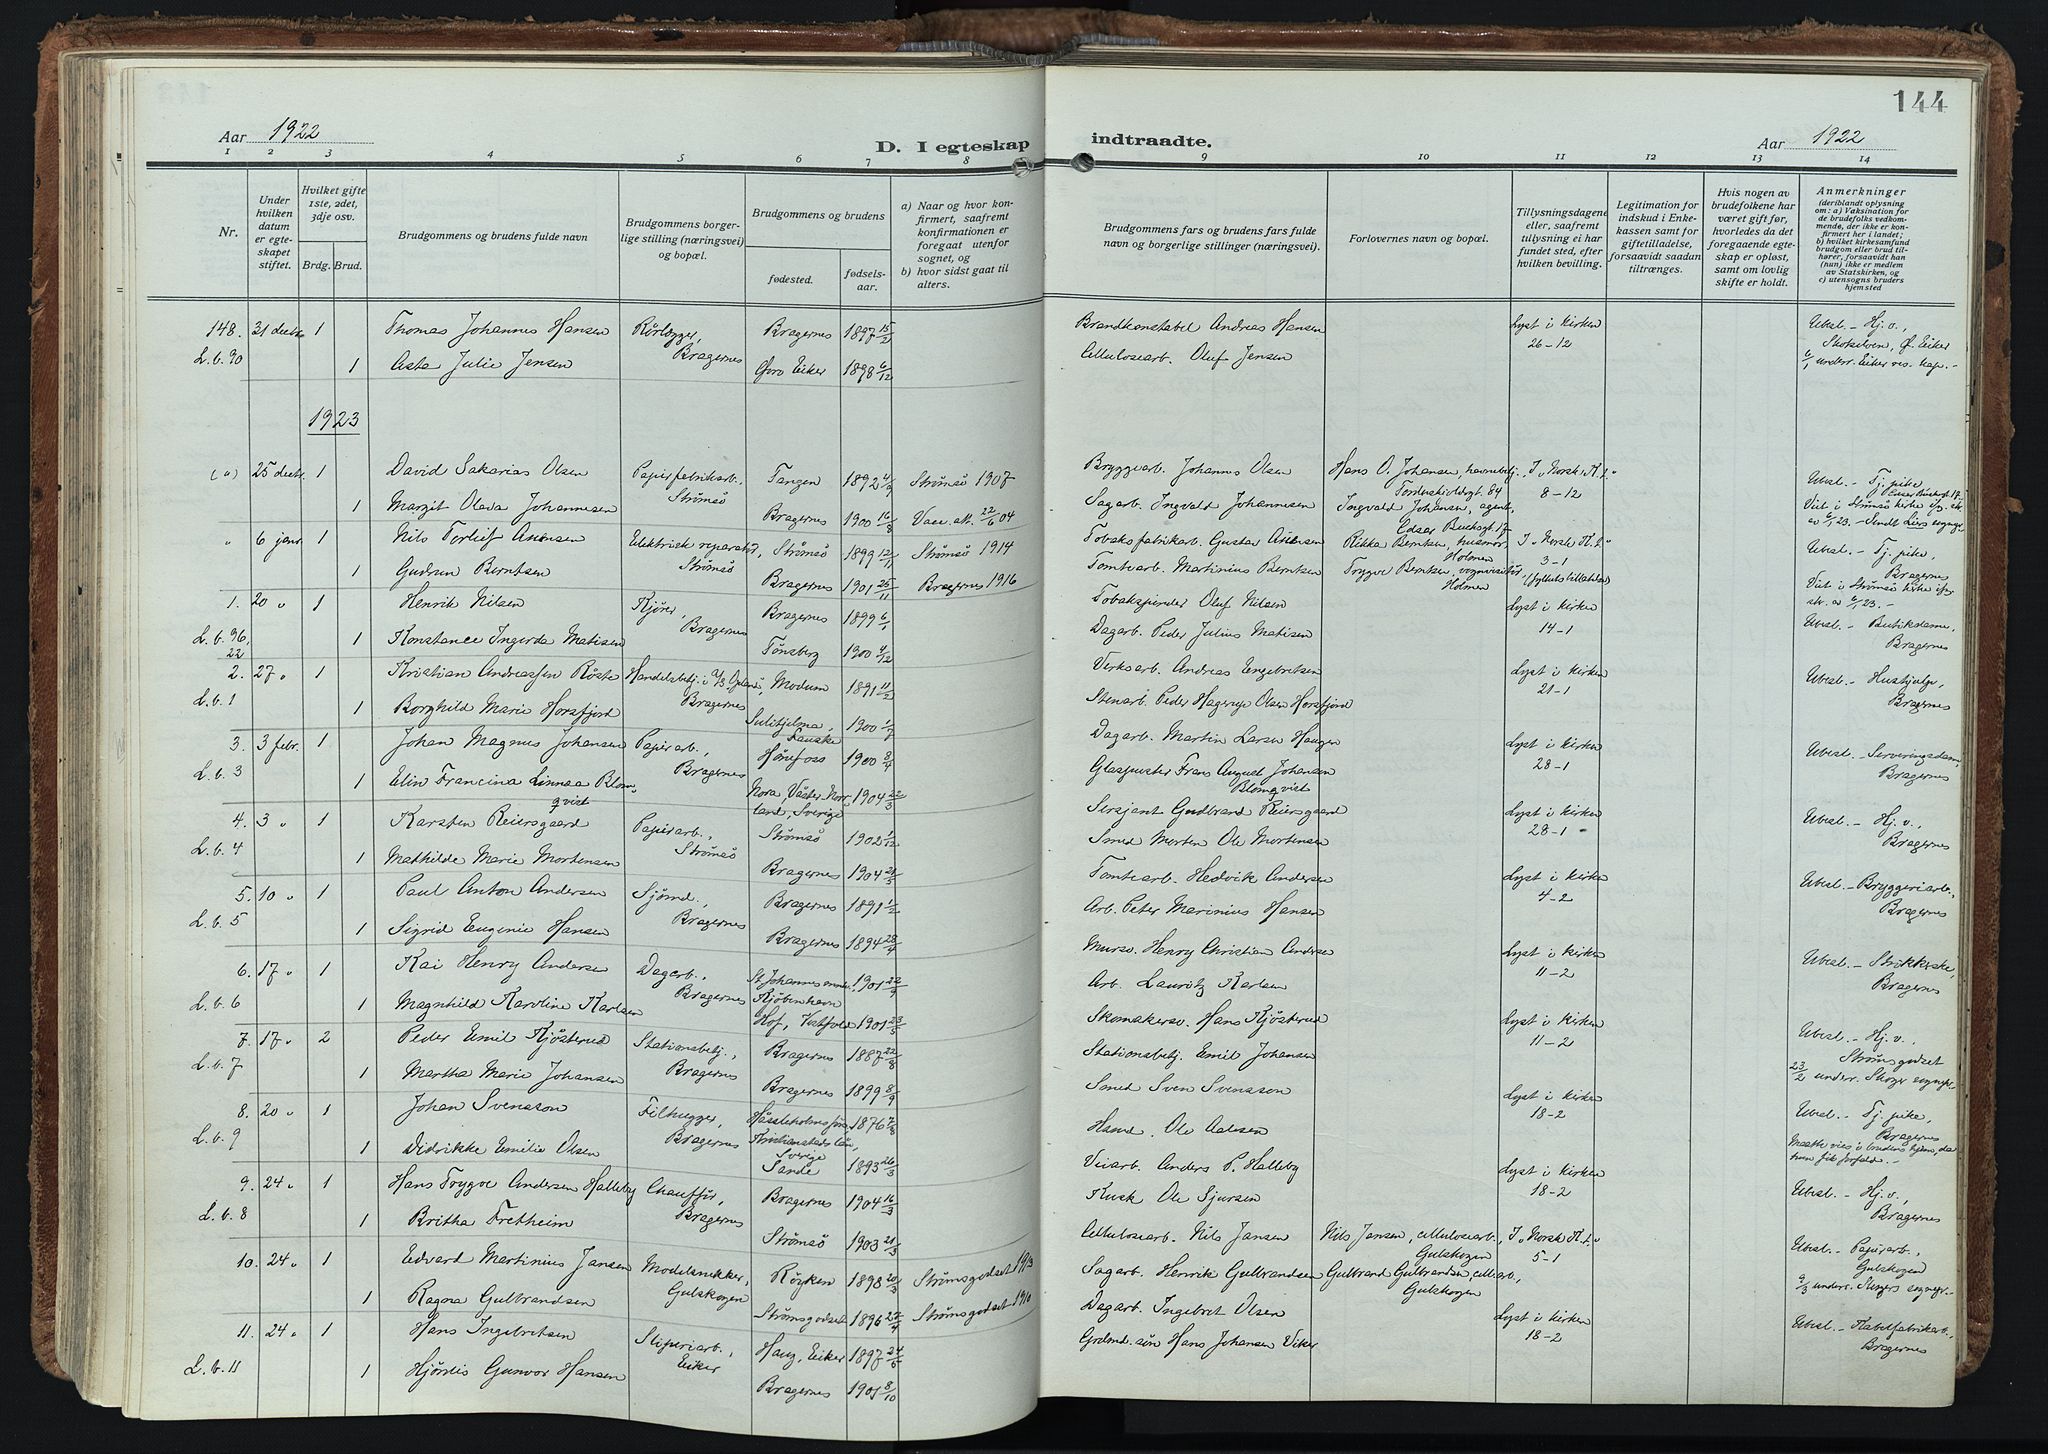 144
Aar 1922
D. I egteskap indtraadte.
Aar 1922
1 2 3 4 5 6 7 8 9 10 11 12 13 14
Nr.
Under hvilken datum er egteskapet stiftet.
Hvilket gifte 1ste, 2det, 3dje osv.
Brdg. Brud.
Brudgommens og brudens fulde navn
Brudgommens borgerlige stilling (næringsvei) og bopæl.
Brudgommens og brudens
fødested.
fødselsaar.
a) Naar og hvor konfirmert, saafremt konfirmationen er foregaat utenfor sognet, og
b) hvor sidst gaat til alters.
Brudgommens fars og brudens fars fulde navn og borgerlige stillinger (næringsvei).
Forlovernes navn og bopæl.
Tillysningsdagene eller, saafremt tillysning ei har fundet sted, efter hvilken bevilling.
Legitimation for indskud i Enkekassen samt for giftetilladelse, forsaavidt saadan tiltrænges.
Hvis nogen av brudefolkene har været gift før, hvorledes da det foregaaende egteskap er opløst, samt om lovlig skifte er holdt.
Anmerkninger
(deriblandt oplysning om: a) Vaksination for de brudefolks vedkommende, der ikke er konfirmert her i landet; b) hvilket kirkesamfund brudgom eller brud tilhører, forsaavidt han (hun) ikke er medlem av Statskirken, og c) utensogns bruders hjemsted
148. 31 decbr 1 Thomas Johannes Hansen Rørlægger, Bragernes Bragernes 1897 15/2 Brandkonstabel Andreas Hansen Lyst i kirken 26-12 Ubesl. - Hj. v.,
L. b. 90 1 Asta Julie Jensen Øvre Eiker 1898 6/12 Cellulosearb. Oluf Jensen Skotselven, Ø. Eiker
1923
(") 25 decbr. 1 David Sakarias Olsen Papirfabrikarb. Strømsø Tangen 1892 4/9 Strømsø 1907 Bryggearb. Johannes Olsen Hans O. Johansen, havnebetj. Tordenskioldsgt. 84 I "Norsk K.t." 8-12 Ubesl. - Tj. pike,
1 Margit Olava Johannesen Bragernes 1900 16/8 Vacc. att. 22/6 04 Sagarb. Ingvald Johannesen Ingvald Johansen, agent, Viet i Strømsø kirke
" 6 janr. 1 Nils Torleif Asensen Elektrisk reparatør, Strømsø Strømsø 1899 12/11 Strømsø 1914 Tobaksfabrikarb. Gustav Asensen Rikka Berntsen, husmor, Holmen I "Norsk K.t." 3-1 Ubesl. - Tj. pike, Bragernes
1 Gudrun Berntsen Bragernes 1901 25/11 Bragernes 1916 Tomtearb. Martinius Berntsen Trygve Berntsen, Holmen Viet i Strømsø kirke
1. 20 " 1 Henrik Nilsen Kjører, Bragernes Bragernes 1899 6/1 Tobakspinder Oluf Nilsen Lyst i kirken 14-1
L. b. 96, 22 1 Konstance Ingerda Matisen Tønsberg 1900 9/12 Dagarb. Peder Julius Matisen Ubesl. - Butikdame, Bragernes
2. 27 " 1 Kristian Andreassen Røste Handelsbetj. i Bragernes Modum 1891 11/2 Verksarb. Andreas Engebretsen Lyst i kirken 21-1 Ubesl. - Hushjelp, Bragernes
L. b. 1 1 Borghild Marie Horsfjord Sulitjelma, Fauske 1900 1/7 Stenarb. Peder Hagerup Olsen Horsfjord
3. 3 febr. 1 Johan Magnus Johansen Papirarb., Bragernes Hønefoss 1900 9/4 Dagarb. Martin Larsen Haugen Lyst i kirken 28-1 Ubesl. - Serveringsdame, Bragernes
L. b. 3 1 Elin Francina Linnea Blomqvist Nora, Väster-Norrland, Sverige 1904 22/3 Glaspuster Frans August Johansen Blomqvist
4. 3 " 1 Karsten Reiersgaard Papirarb., Strømsø Strømsø 1902 1/12 Sersjant Gudbrand Reiersgaard Lyst i kirken 28-1 Ubesl. - Hj. v., Bragernes
L. b. 4 1 Mathilde Marie Mortensen Bragernes 1904 21/5 Smed Morten Ole Mortensen
5. 10 " 1 Paul Anton Andersen Sjømd., Bragernes Bragernes 1891 1/2 Tomtearb. Hedvik Andersen Lyst i kirken 4-2 Ubesl. - Bryggeriarb., Bragernes
L. b. 5 1 Sigrid Eugenie Hansen Bragernes 1894 28/4 Arb. Peter Marinius Hansen
6. 17 " 1 Kai Henry Andersen Dagarb., Bragernes St. Johannes Kjøbenhavn 1901 22/9 Mursv. Henry Christian Andersen Lyst i kirken 11-2 Ubesl. - Strikkerske, Bragernes
L. b. 6 1 Magnhild Karoline Karlsen Hof, Vestfold 1901 23/5 Arb. Lauritz Karlsen
7. 17 " 2 Peder Emil Kjøsterud Stationsbetj., Bragernes Bragernes 1887 22/8 Skomakersv. Hans Kjøsterud Lyst i kirken 11-2 Ubesl. - Hj. v., Strømsgodset
L. b. 7 1 Martha Marie Johansen Bragernes 1899 8/9 Stationsbetj. Emil Johansen 23/2 underr. Skoger sognepr.
8. 20 " 1 Johan Svensson Filhugger, Bragernes Hässleholms Kristianstads län, Sverige 1876 7/8 Smed Sven Svensson Lyst i kirken 18-2 Ubesl. - Tj. pike, Bragernes
L. b. 9 1 Didrikke Emilie Olsen Sande 1893 26/3 Hsmd. Ole Adesen Maatte vies i brudens hjem, da hun fik forfald. -
9. 24 " 1 Hans Trygve Andersen Halleby Chauffør, Bragernes Bragernes 1904 16/3 Veiarb. Anders P. Halleby Lyst i kirken 18-2 Ubesl. - Hj. v., Bragernes
L. b. 8 1 Britha Fretheim Strømsø 1903 21/3 Kusk Ole Sjursen
10. 24 " 1 Edvard Martinius Jansen Modelsnekker, Gulskogen Røyken 1898 20/3 Strømsgodset 1913 Cellulosearb. Nils Jansen Nils Jansen, cellulosearb., Gulskogen I "Norsk K.t." 5-1 Ubesl. - Papirarb., Gulskogen
1 Ragna Gulbrandsen Strømsgodset 1896 27/4 Strømsgodset 1910 Sagarb. Henrik Gulbrandsen Gulbrand Gulbrandsen, cell.arb., Gulskogen 9/3 underr. Skogers sognepr. -
11. 24 " 1 Hans Ingebretsen Sliperiarb., Eiker Haug, Eiker 1897 24/5 Dagarb. Ingebret Olsen Lyst i kirken 18-2 Ubesl. - Kabelfabrikarb., Bragernes
L. b. 11 1 Hjørdis Gunvor Hansen Bragernes 1901 8/10 Grdmd. søn Hans Johansen Viker